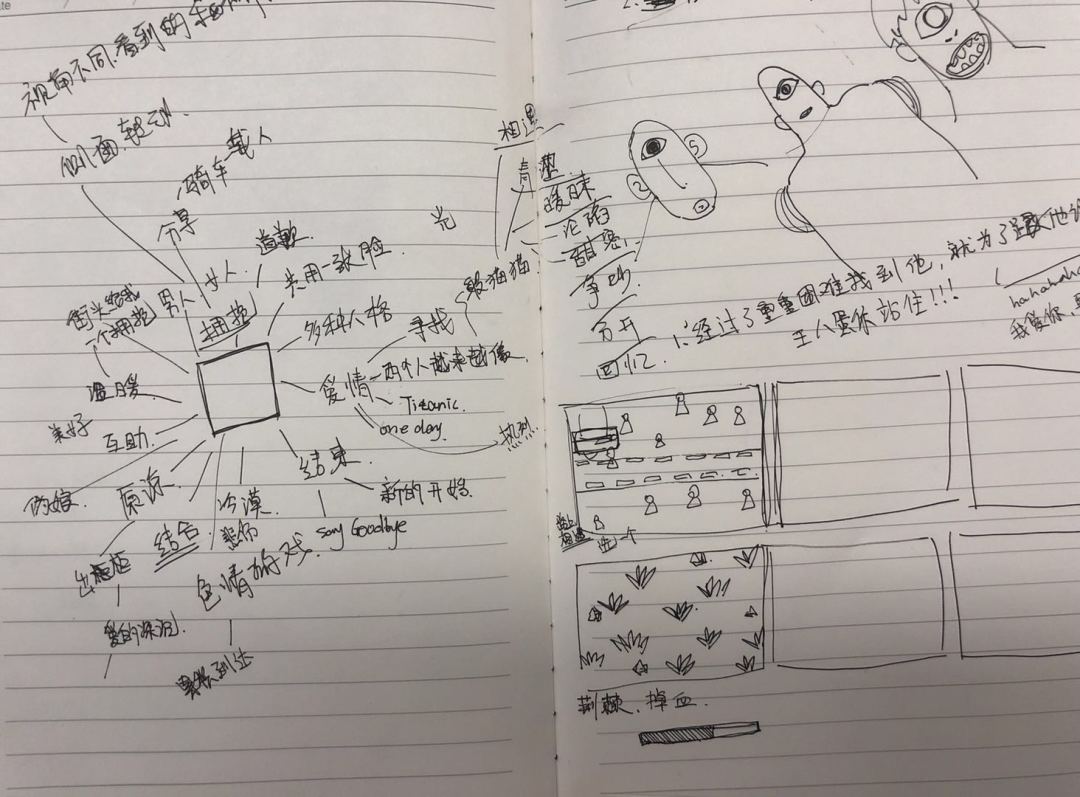 视角不同.看到的
侧面
骑车载人
分享
道歉
光
女人.
男人
拥抱
共用一张脸.
街头给我
一个拥抱
多种人格
寻找
躲猫猫
爱情
两个人越来越像.
Titanic.
one day.
热烈.
温暖
美好
互助.
原谅.
结束.
新的开始.
say Goodbye
冷漠
悲伤
结合
出柜
色情的戏.
爱的深沉.
相遇
青涩
暧昧
沦陷
甜蜜.
争吵
分开
回忆.
2.
5
2
1.经过了重重困难找到他,就为了
王八蛋你站住!!!
hahahaha
我爱你.
选一个
荆棘.掉血.